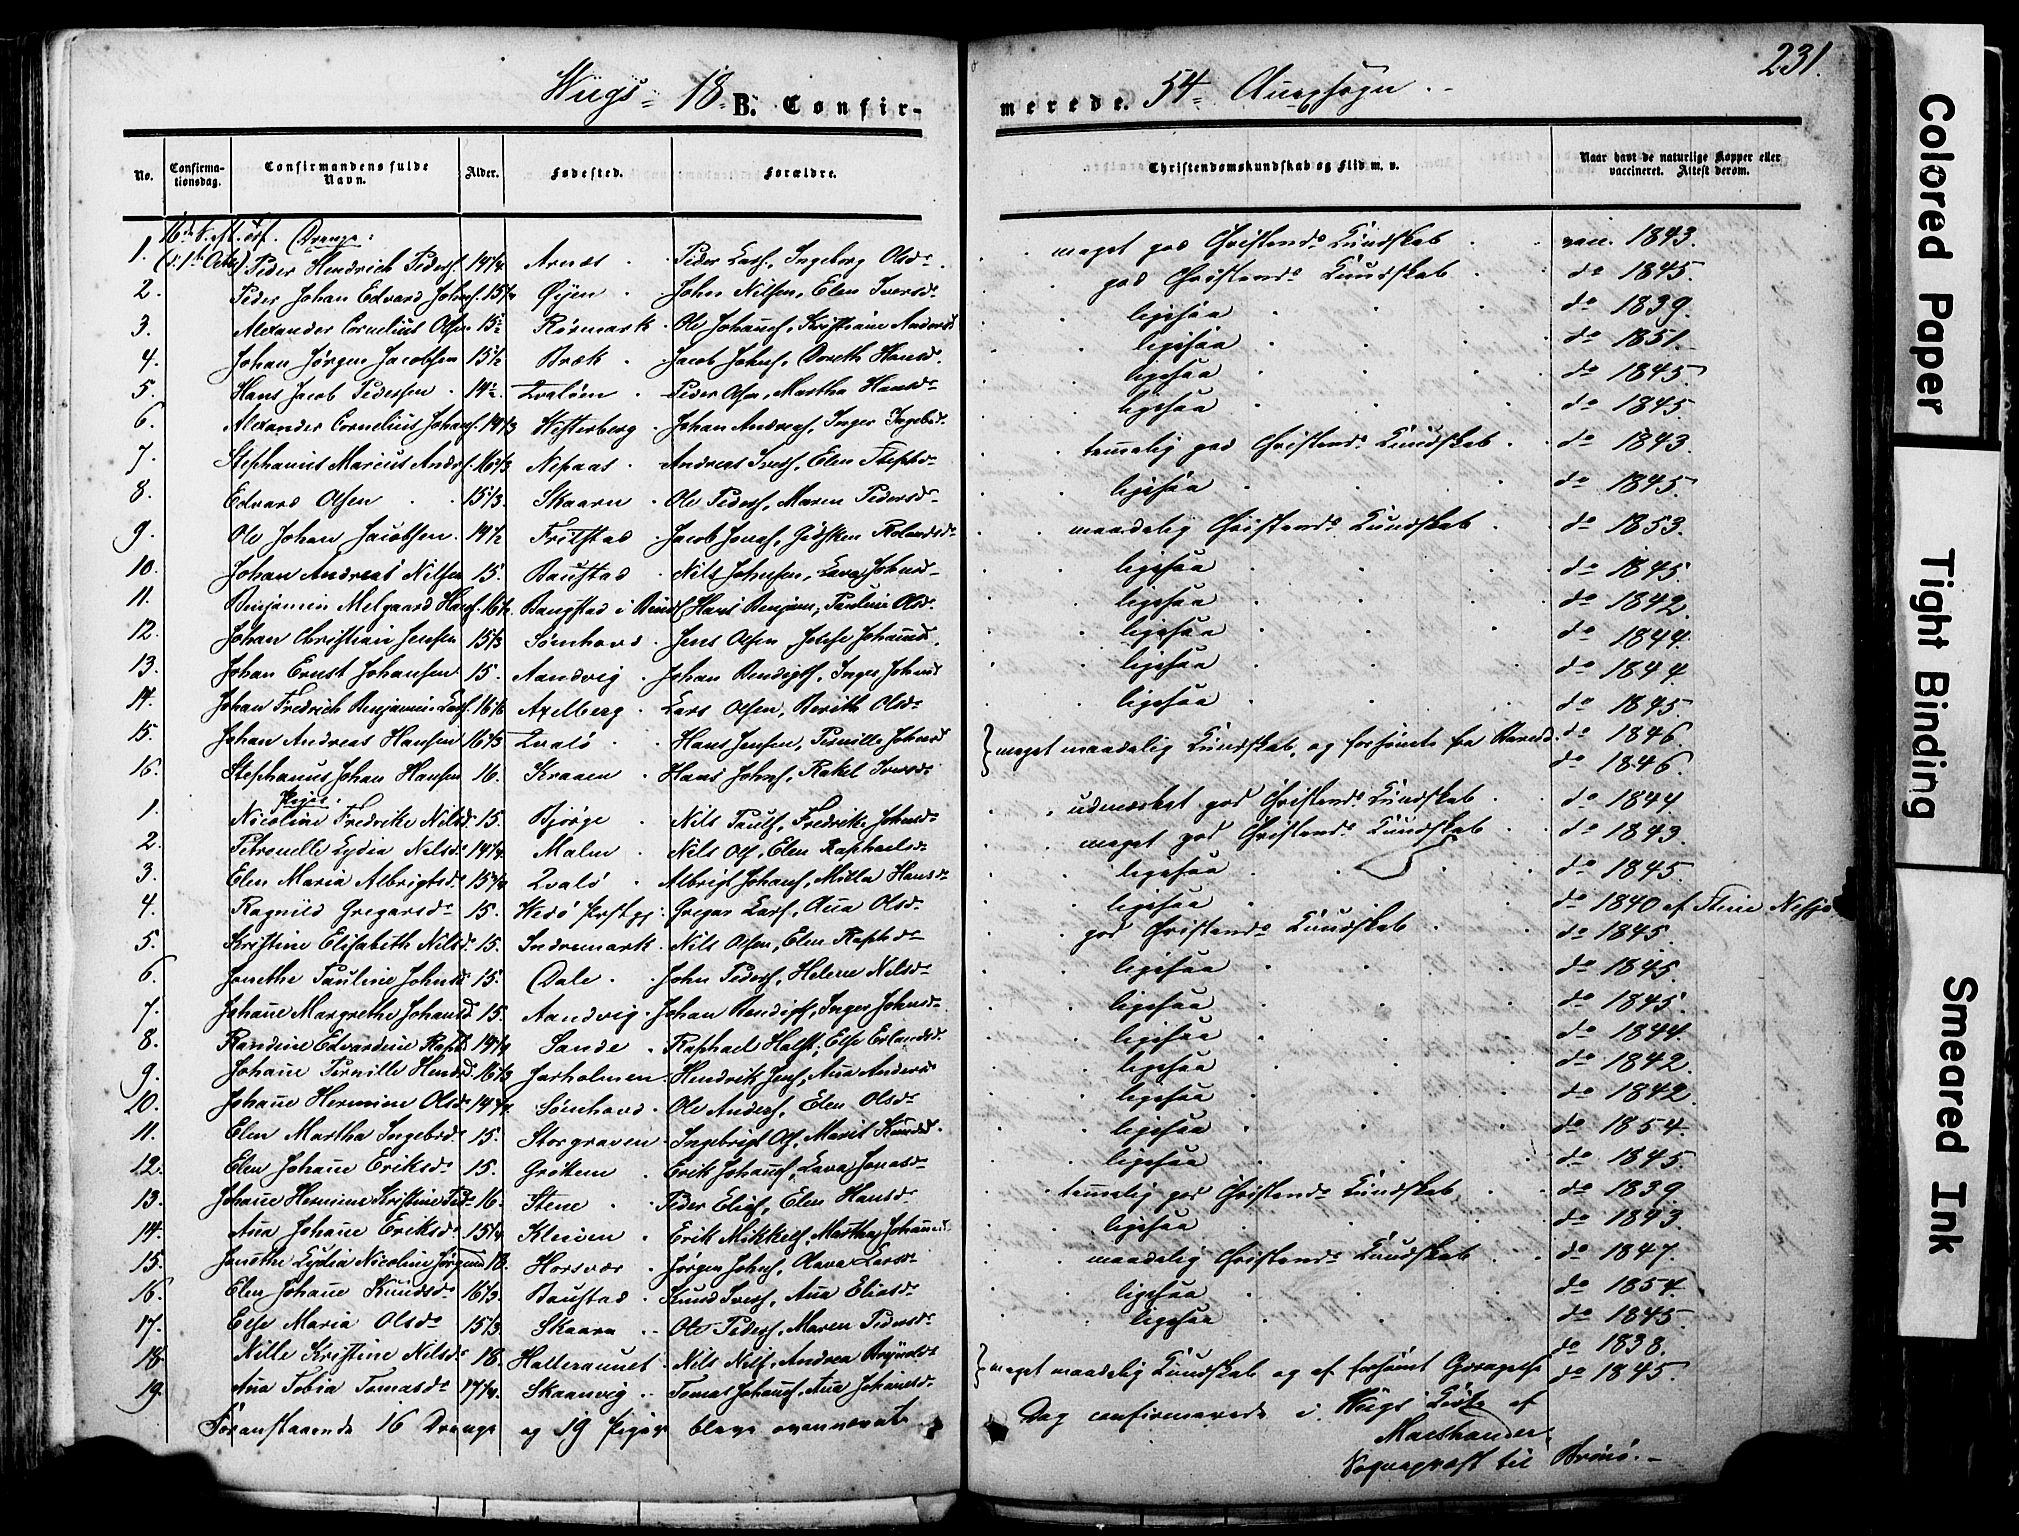 231.
Wiigs 18 B. Confir-
merede. 54 Annexsogn.
No. Confirma-tionsdag. Confirmandens fulde Navn. Alder. Fødested. Forældre.
Christendomskundskab og Flid m. v. Naar havt de naturlige Kopper eller vaccineret. Attest derom.
Drenge:
1. (d. 1ste Octbr) Peder Hendrich Peders. 14 3/4 Arnæs Peder Lars., Ingeborg Olsdr. meget god Christend. Kundskab vacc. 1843.
2. Peder Johan Edvard Johns. Øyen John Nilsen, Elen Iversdr. god Christend. Kundskab do 1845.
3. Alexander Cornelius Olsen 15 Røsmark Ole Johans., Kristiane Andersd. ligesaa do 1839.
4. Johan Jørgen Jacobsen 15 1/2 Bræk Jacob Johns., Doreth Hansd. ligesaa do 1851.
5. Hans Jacob Pedersen 14 Peder Olsen, Martha Hansdr. ligesaa do 1845.
6. Alexander Cornelius Johans. 14 1/3 Westerberg Johan Andreas., Inger Ingebr. ligesaa do 1845
7. Stephanus Marius Andrs. 16 Nepaas Andreas Ivers., Elen Stephd. temelig god Christend. Kundskab do 1843.
8. Edvard Olsen 15 1/3 Skaarn Ole Peders., Maren Pedersdr. ligesaa do 1845.
9. Ole Johan Jacobsen 14 1/2 Fritstad Jacob Jonas., Gidsken Rolandsdr. maadelig Christend. Kundskab do 1853.
10. Johan Andreas Nilsen 15. Baustad Nils Johnsen, Lava Johnsd. ligesaa do 1845.
11. Benjamin Melgaard Hans. 16 1/2 Bangstad i Bind. Hans Benjam., Pauline Olsd. ligesaa do 1842.
12. Johan Christian Jensen 15 1/3 Sømhovd Jens Olsen, Johansd. ligesaa do 1844.
13. Johan Ernst Johansen 15. Aandvig Johan Bendigts., Inger Johnsd. ligesaa do 1844.
14. Johan Fredrich Benjamin Lars. Axelberg Lars Olsen, Berith Olsdr. ligesaa do 1845.
15. Johan Andreas Hansen Hans Jensen, Pernille Johnsd. } meget maadelig Kundskab, og forsømt fra Barnd. do 1846.
16. Stephanus Johan Hansen 16. Kraaen Hans Johns., Rakel Iversd. do 1846.
Piger:
1. Nicoline Fredrike Nilsd. 15. Bjørge Nils Pauls., Fredrike Johnsdr. udmærket god Christend. Kundskab do 1844
2. Petronelle Lydia Nilsdr. 14 3/4 Malm Nils Ols., Elen Raphaelsdr. meget god Christend. Kundskab do 1843.
3. Elen Maria Albrigtsdr. Albrigt Johans., Milla Hansdr. ligesaa do 1845.
4. Ragnild Gregarsdr. 15. Wedø Gregar Lars., Ana Olsdr. ligesaa do 1840 af Stene
5. Kristine Elisabeth Nilsd. 15. Indremark Nils Olsen, Elen Raphdr. god Christend. Kundskab do 1845.
6. Jonethe Pauline Johnsd. 15. Dale John Peders., Helene Nilsdr. ligesaa do 1845.
7. Johane Margrethe Johansd. 15. Aandvig Johan Bendigts., Inger Johnsdr. ligesaa do 1845.
8. Randine Edvardine Raphd. Sande Raphael Halst., Else Erlandsd. ligesaa do 1844.
9. Johane Pernille Hendrd. Jarholmen Hendrik Jens., Ana Andersd. ligesaa do 1842.
10. Johane Hermine Olsdr. 14 3/4 Sømhovd Ole Anders., Elen Olsdr. ligesaa do 1842.
11. Elen Martha Ingebrdr. 15. Storgraven Ingebrigt Ols., Marit Knudsd. ligesaa do 1854.
12. Elen Johane Eriksdr. 15. Grøkem Erik Johans., Lava Jonasdr. ligesaa do 1845.
13. Johane Hermine Kristine Pedr. 16. Stene Peder Elias., Elen Hansdr. temelig god Christend. Kundskab do 1839
14. Ana Johane Eriksdr. Kleiven Erik Mikkels., Martha Johansd. ligesaa do 1843.
15. Jonethe Lydia Nicoline Jørgensd. 18. Horsvær Jørgen Johns., Olava Larsdr. maadelig Christend. Kundskab do 1847.
16. Elen Johane Knudsdr. 16 1/3 Baustad Knud Ivers., Ana Eliasdr. ligesaa do 1854
17. Else Maria Olsdr. 15 1/3 Skaarn Ole Peders., Maren Pedersdr. ligesaa do 1845.
18. Nille Kristine Nilsdr. 18. Nils Nils., Andrea } meget maadelig Kundskab og af forsømt do 1838.
19. Ana Tobia Tomasdr. 17 1/4 Skaanvig Tomas Johans., Ana Johansdr. do 1845.
Foranstaaende 16 Drenge og 19 Piger bleve ovennævnte Dag confirmerede i Wiigs Kirke af
Sognepræst til Brønø.
Colored Paper
Tight Binding
Smeared Ink